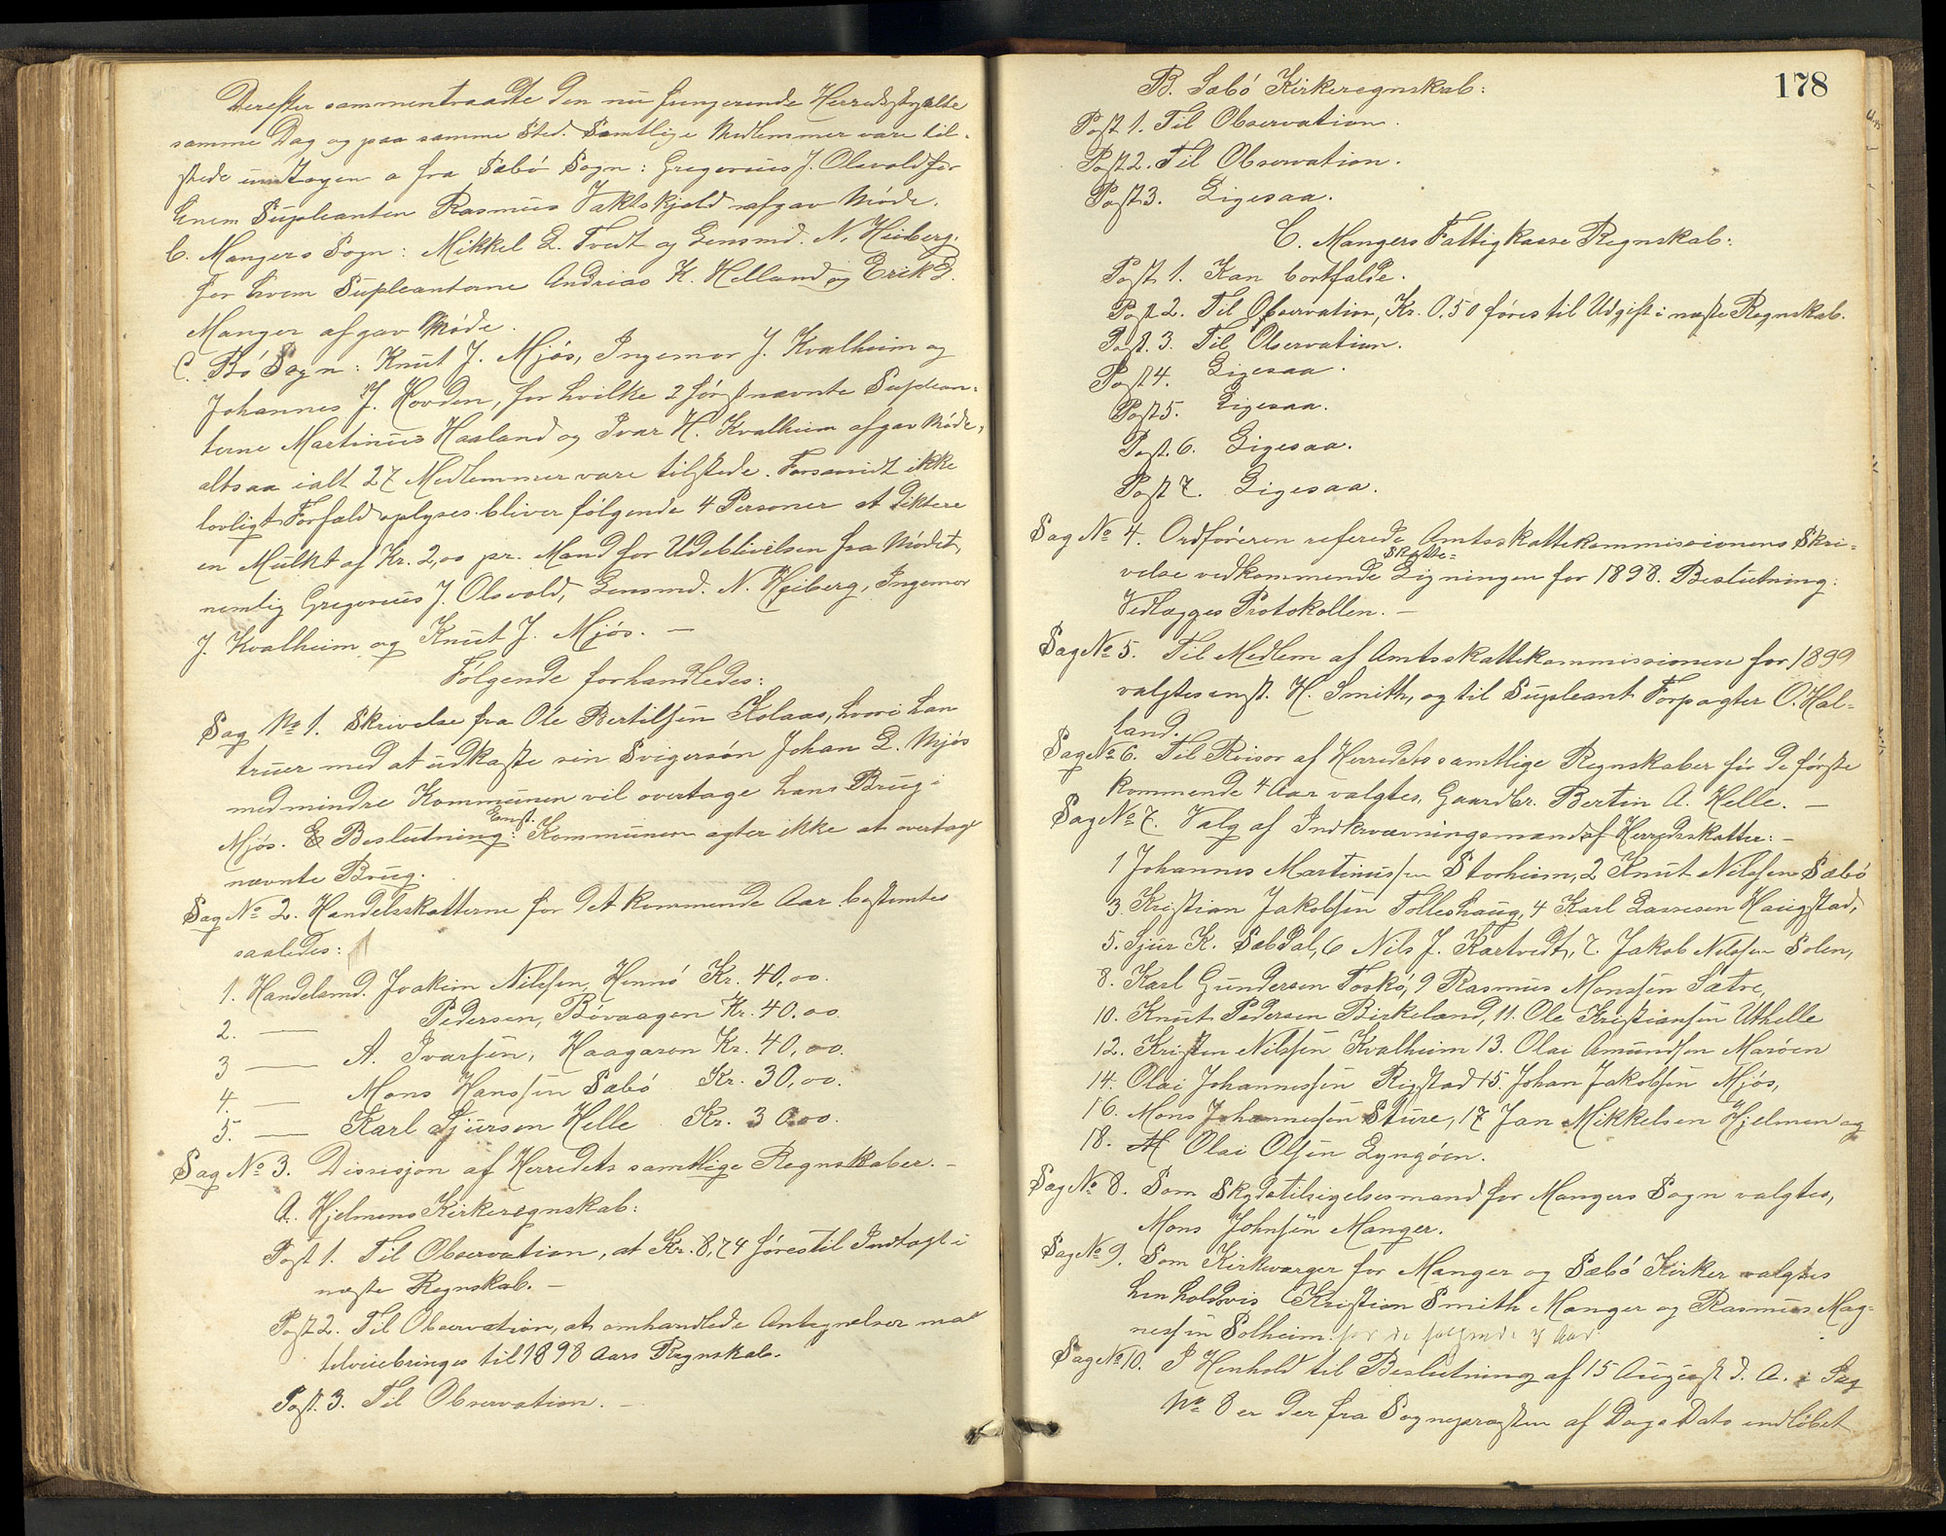 Derefter sammentraadte den nu fungerende Herredsstyrelse
samme Dag og paa samme Sted. Samtlige Medlemmer vare til-
stede undtagen a fra Sæbö Sogn: Gregorius J. Olsvold for
hvem Supleanten Rasmus Vaktskjold afgav Möde.
b. Mangers Sogn: Mikkel L. Tvedt og Lensmd. N. Heiberg,
for hvem Supleanterne Andreas K. Helland og Erik D.
Manger afgav Möde.
C. Bö Sogn: Knut J. Mjös, Ingemor J. Kvalheim og
Johannes J. Hovden, for hvilke 2 förstnævnte Suplean-
terne Martinus Hasland og Ivar H. Kvalheim afgav Möde,
altsaa ialt 27 Medlemmer vare tilstede. Forsaavidt ikke
lovligt Forfald oplyses bliver følgende 4 Personer at diktere
en Mulkt af Kr. 2,00 pr. Mand for Udeblivelsen fra Mödet,
nemlig Gregorius J. Olsvold, Lensmd. N. Heiberg, Ingemor
J. Kvalheim og Knut J. Mjös. —
Fölgende forhandledes:
Sag No 1. Skrivelse fra Ole Bertilsen Kolaas, hvori han
truer med at udkaste sin Svigersön Johan L. Mjös
medmindre Kommunen vil overtage hans Brug i
Mjös. Beslutning: Enst. Kommunen agter ikke at overtage
nævnte Brug.
Sag No 2. Handelsskatterne for det kommende Aar bestemtes
saaledes:
1. Handelsmd. Joakim Nilssen, Hennö Kr. 40,00.
2. — Pedersen, Bövaagen Kr. 40.00.
3 — A. Ivarsen, Haagaren Kr. 40,00.
4. — Mons Hanssen Sæbö Kr. 30,00.
5. — Karl Sjursen Helle Kr. 30.00.
Sag No 3. Dissisjon af Herredets samtlige Regnskaber. —
A. Hjelmens Kirkeregnskab:
Post 1. Til Observation, at Kr. 8,74 föres til Indtægt i
næste Regnskab. —
Post 2. Til Observation, at omhandlede Antegnelser maa
tilveiebringes til 1898 Aars Regnskab.
Post. 3. Til Observation. —
178
B. Sæbö Kirkeregnskab:
Post 1. Til Observation.
Post 2. Til Observation.
Post 3. Ligesaa.
C. Mangers Fattigkasse Regnskab:
Post 1. Kan bortfalde.
Post 2. Til Observation, Kr. 0.50 föres til Udgift i næste Regnskab.
Post. 3. Til Observation.
Post 4. Ligesaa.
Post 5. Ligesaa.
Post. 6. Ligesaa.
Post 7. Ligesaa.
Sag No 4. Ordföreren referede Amtsskattekommissionens Skri-
velse vedkommende Skatte- Ligningen for 1898. Beslutning:
Vedlægges Protokollen. —
Sag No 5. Til Medlem af Amtsskattekommissionen for 1899
valgtes enst. H. Smith, og til Supleant Forpagter O. Hal-
land.
Sag No 6. Til Revisor af Herredets samtlige Regnskaber för de förste
kommende 4 Aar valgtes, Gaardbr. Bertin A. Helle. —
Sag No 7. Valg af Indkrævningsmænd af Herredsskatter: —
1 Johannes Martinussen Storheim, 2 Knut Nilssen Sæbö
3. Kristian Jakobsen Tolleshaug, 4 Karl Lassesen Haugstad,
5. Sjur K. Sæbdal, 6 Nils J. Kartvedt, 7. Jakob Nilssen Solen,
8. Karl Gundersen Toskö, 9 Rasmus Monssen Sætre,
10. Knut Pedersen Birkeland, 11. Ole Kristiansen Uthelle
12. Kristen Nilssen Kvalheim 13. Olai Amundsen Maröen
14. Olai Johannessen Rigstad 15. Johan Jakobsen Mjös,
16. Mons Johannessen Sture, 17 Jan Mikkelsen Hjelmen og
18. Olai Olsen Lyngöen.
Sag No 8. Som Skydstilsigelsesmand for Mangers Sogn valgtes,
Mons Johnsen Manger.
Sag No 9. Som Kirkeværger for Manger og Sæbö Kirker valgtes
henholdsvis Kristian Smith Manger og Rasmus Mag-
nessen Solheim. for de følgende 4 Aar.
Sag No 10. I Henhold til Beslutning af 15 August d. A. i Sag
No 8 er der fra Sognepræsten af Dags Dato indlöbet